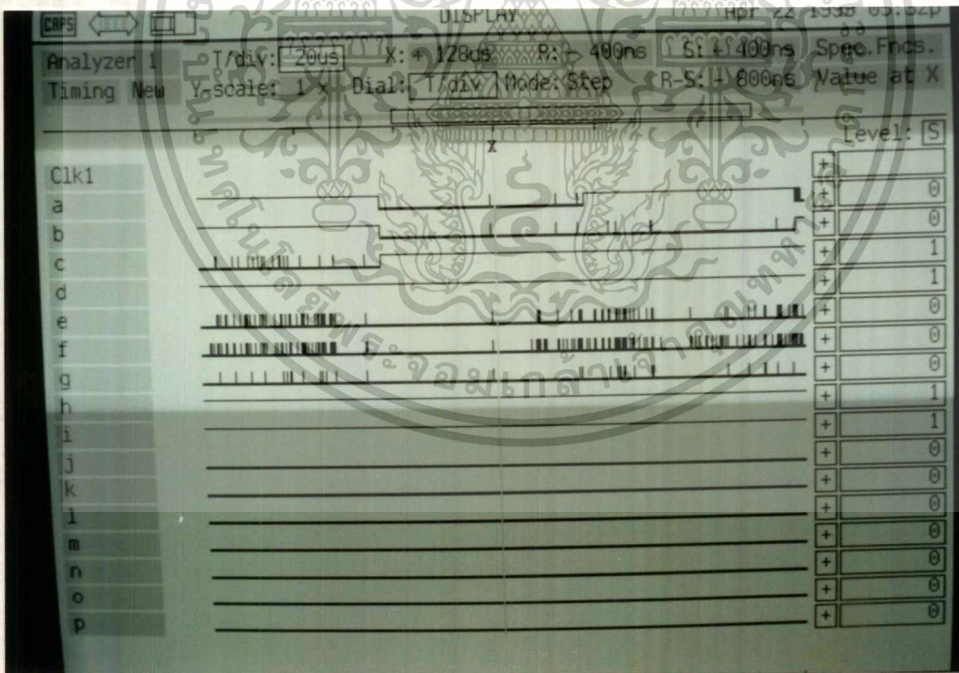 CAPS IEEE DISPLAY Apr 22
Analyzer 1 T/div: 20us X: + 128us R: - 400ns S: + 400ns Spec.Fncs.
Timing New Y-scale: 1 x Dial: T/div Mode: Step R-S: - 800ns Value at X
Level: S
X
Clk1 +
a + 0
b + 0
c + 1
d + 1
e + 0
f + 0
g + 0
h + 1
i + 1
j + 0
k + 0
l + 0
m + 0
n + 0
o + 0
p + 0